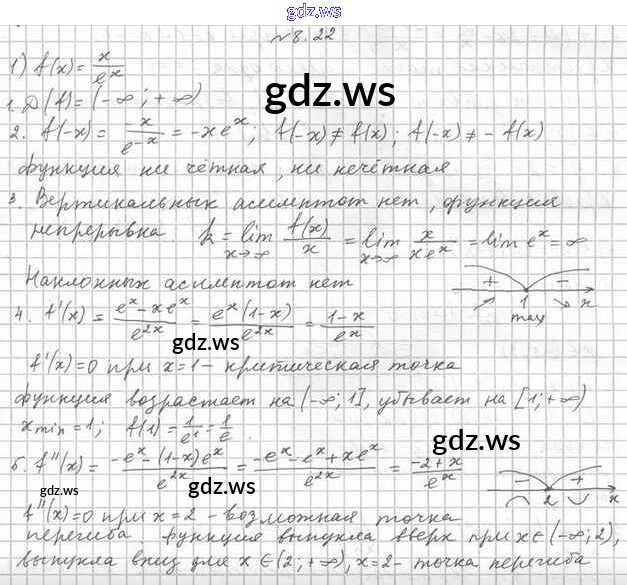 gdz.ws
№ 8.22
1) f(x) = x/e^x
1. D(f) = (-∞; +∞)
gdz.ws
2. f(-x) = -x/e^-x = -x e^x; f(-x) ≠ f(x); f(-x) ≠ -f(x)
функция ни чётная, ни нечётная
3. Вертикальных асимптот нет, функция
непрерывна. k = lim x→∞ f(x)/x = lim x→∞ x/xe^x = lim e^x = ∞
Наклонных асимптот нет
+ - 1 max x
4. f'(x) = e^x - xe^x/e^2x = e^x(1-x)/e^2x = 1-x/e^x
gdz.ws
f'(x) = 0 при x = 1 - критическая точка
функция возрастает на (-∞; 1], убывает на [1; +∞)
x min = 1; f(1) = 1/e^1 = 1/e.
gdz.ws
5. f''(x) = -e^x - (1-x)e^x/e^2x = -e^x - e^x + xe^x/e^2x = -2+x/e^x
- + 2 x
gdz.ws
gdz.ws
f''(x) = 0 при x = 2 - возможная точка
перегиба. функция выпукла вверх при x ∈ (-∞; 2),
выпукла вниз для x ∈ (2; +∞), x = 2 - точка перегиба